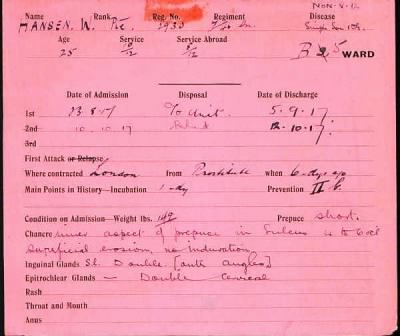 Non-V.D.
Name Rank Reg. No. Regiment Disease
HANSEN. W. Pte.
Age Service Service Abroad
25 10/12 5/12 B 5 WARD
Date of Admission Disposal Date of Discharge
1st 5.9.17
2nd 10.10.17 10.17
3rd
First Attack or Relapse
Where contracted London from Prostitute when 6 days ago
Main Points in History—Incubation 1-dy Prevention II
Condition on Admission—Weight lbs. 149 Prepuce short.
Chancre inner aspect of prepuce in Sulcus
superficial erosion, no induration.
Inguinal Glands Sl. Double. [ angles]
Epitrochlear Glands — Double Cervical
Rash
Throat and Mouth
Anus